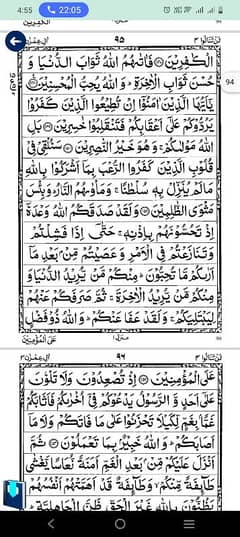 4:55 22:05
لن تنالوا ٤ ٩٥ اٰل عمرٰن ٣
94
الْكٰفِرِيْنَ فَاٰتٰىهُمُ اللّٰهُ ثَوَابَ الدُّنْيَا وَ
حُسْنَ ثَوَابِ الْاٰخِرَةِ ؕ وَاللّٰهُ يُحِبُّ الْمُحْسِنِيْنَ
يٰۤاَيُّهَا الَّذِيْنَ اٰمَنُوْۤا اِنْ تُطِيْعُوا الَّذِيْنَ كَفَرُوْا
يَرُدُّوْكُمْ عَلٰۤى اَعْقَابِكُمْ فَتَنْقَلِبُوْا خٰسِرِيْنَ بَلِ
اللّٰهُ مَوْلٰىكُمْ ۚ وَهُوَ خَيْرُ النّٰصِرِيْنَ سَنُلْقِيْ فِيْ
قُلُوْبِ الَّذِيْنَ كَفَرُوا الرُّعْبَ بِمَاۤ اَشْرَكُوْا بِاللّٰهِ
مَا لَمْ يُنَزِّلْ بِهٖ سُلْطٰنًا ۚ وَمَاْوٰىهُمُ النَّارُ ؕ وَبِئْسَ
مَثْوَى الظّٰلِمِيْنَ وَلَقَدْ صَدَقَكُمُ اللّٰهُ وَعْدَهٗۤ
اِذْ تَحُسُّوْنَهُمْ بِاِذْنِهٖ ۚ حَتّٰۤى اِذَا فَشِلْتُمْ
وَتَنَازَعْتُمْ فِي الْاَمْرِ وَعَصَيْتُمْ مِّنْۢ بَعْدِ مَاۤ
اَرٰىكُمْ مَّا تُحِبُّوْنَ ؕ مِنْكُمْ مَّنْ يُّرِيْدُ الدُّنْيَا وَ
مِنْكُمْ مَّنْ يُّرِيْدُ الْاٰخِرَةَ ۚ ثُمَّ صَرَفَكُمْ عَنْهُمْ
لِيَبْتَلِيَكُمْ ۚ وَلَقَدْ عَفَا عَنْكُمْ ؕ وَاللّٰهُ ذُوْ فَضْلٍ
عَلَى الْمُؤْمِنِيْنَ
لن تنالوا ٤ ٩٦ اٰل عمرٰن ٣
عَلَى الْمُؤْمِنِيْنَ اِذْ تُصْعِدُوْنَ وَلَا تَلْوٗنَ
عَلٰۤى اَحَدٍ وَّالرَّسُوْلُ يَدْعُوْكُمْ فِيْۤ اُخْرٰىكُمْ فَاَثَابَكُمْ
غَمًّۢا بِغَمٍّ لِّكَيْلَا تَحْزَنُوْا عَلٰى مَا فَاتَكُمْ وَلَا مَاۤ
اَصَابَكُمْ ؕ وَاللّٰهُ خَبِيْرٌۢ بِمَا تَعْمَلُوْنَ ثُمَّ
اَنْزَلَ عَلَيْكُمْ مِّنْۢ بَعْدِ الْغَمِّ اَمَنَةً نُّعَاسًا يَّغْشٰى
طَآئِفَةً مِّنْكُمْ ۙ وَطَآئِفَةٌ قَدْ اَهَمَّتْهُمْ اَنْفُسُهُمْ
يَظُنُّوْنَ بِاللّٰهِ غَيْرَ الْحَقِّ ظَنَّ الْجَاهِلِيَّةِ